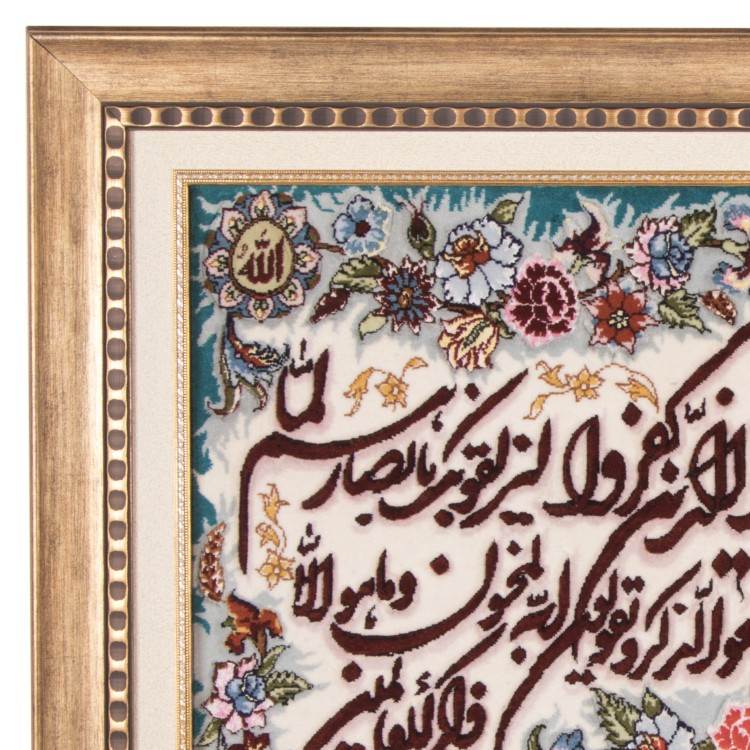 الله
الذين كفروا ليزلقونك بابصارهم لما
الذكر ويقولون انه لمجنون وما هو الا
ذكر للعالمين